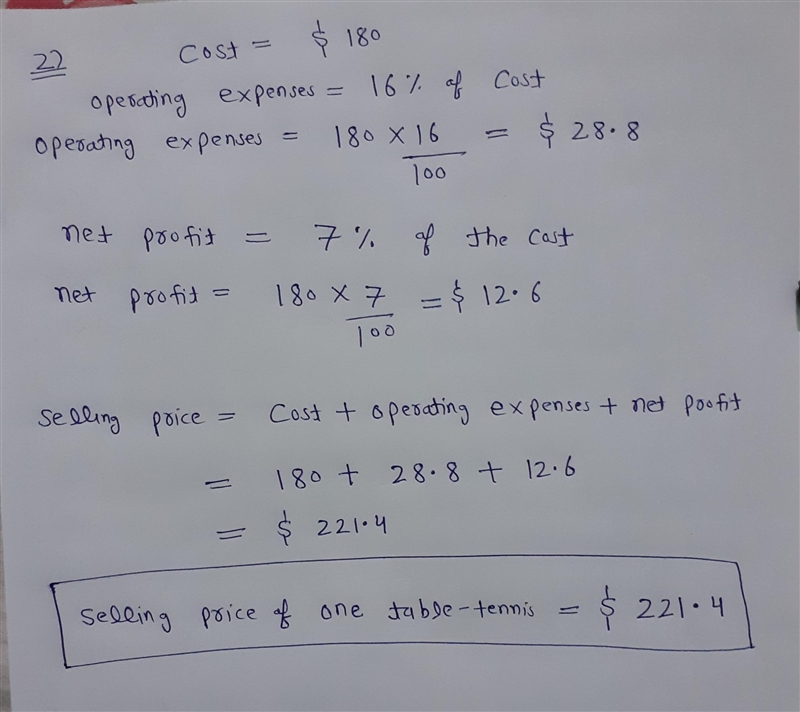 22 Cost = $ 180
operating expenses = 16% of Cost
operating expenses = 180 × 16/100 = $ 28.8
net profit = 7% of the cost
net profit = 180 × 7/100 = $ 12.6
Selling price = Cost + operating expenses + net profit
= 180 + 28.8 + 12.6
= $ 221.4
Selling price of one table-tennis = $ 221.4